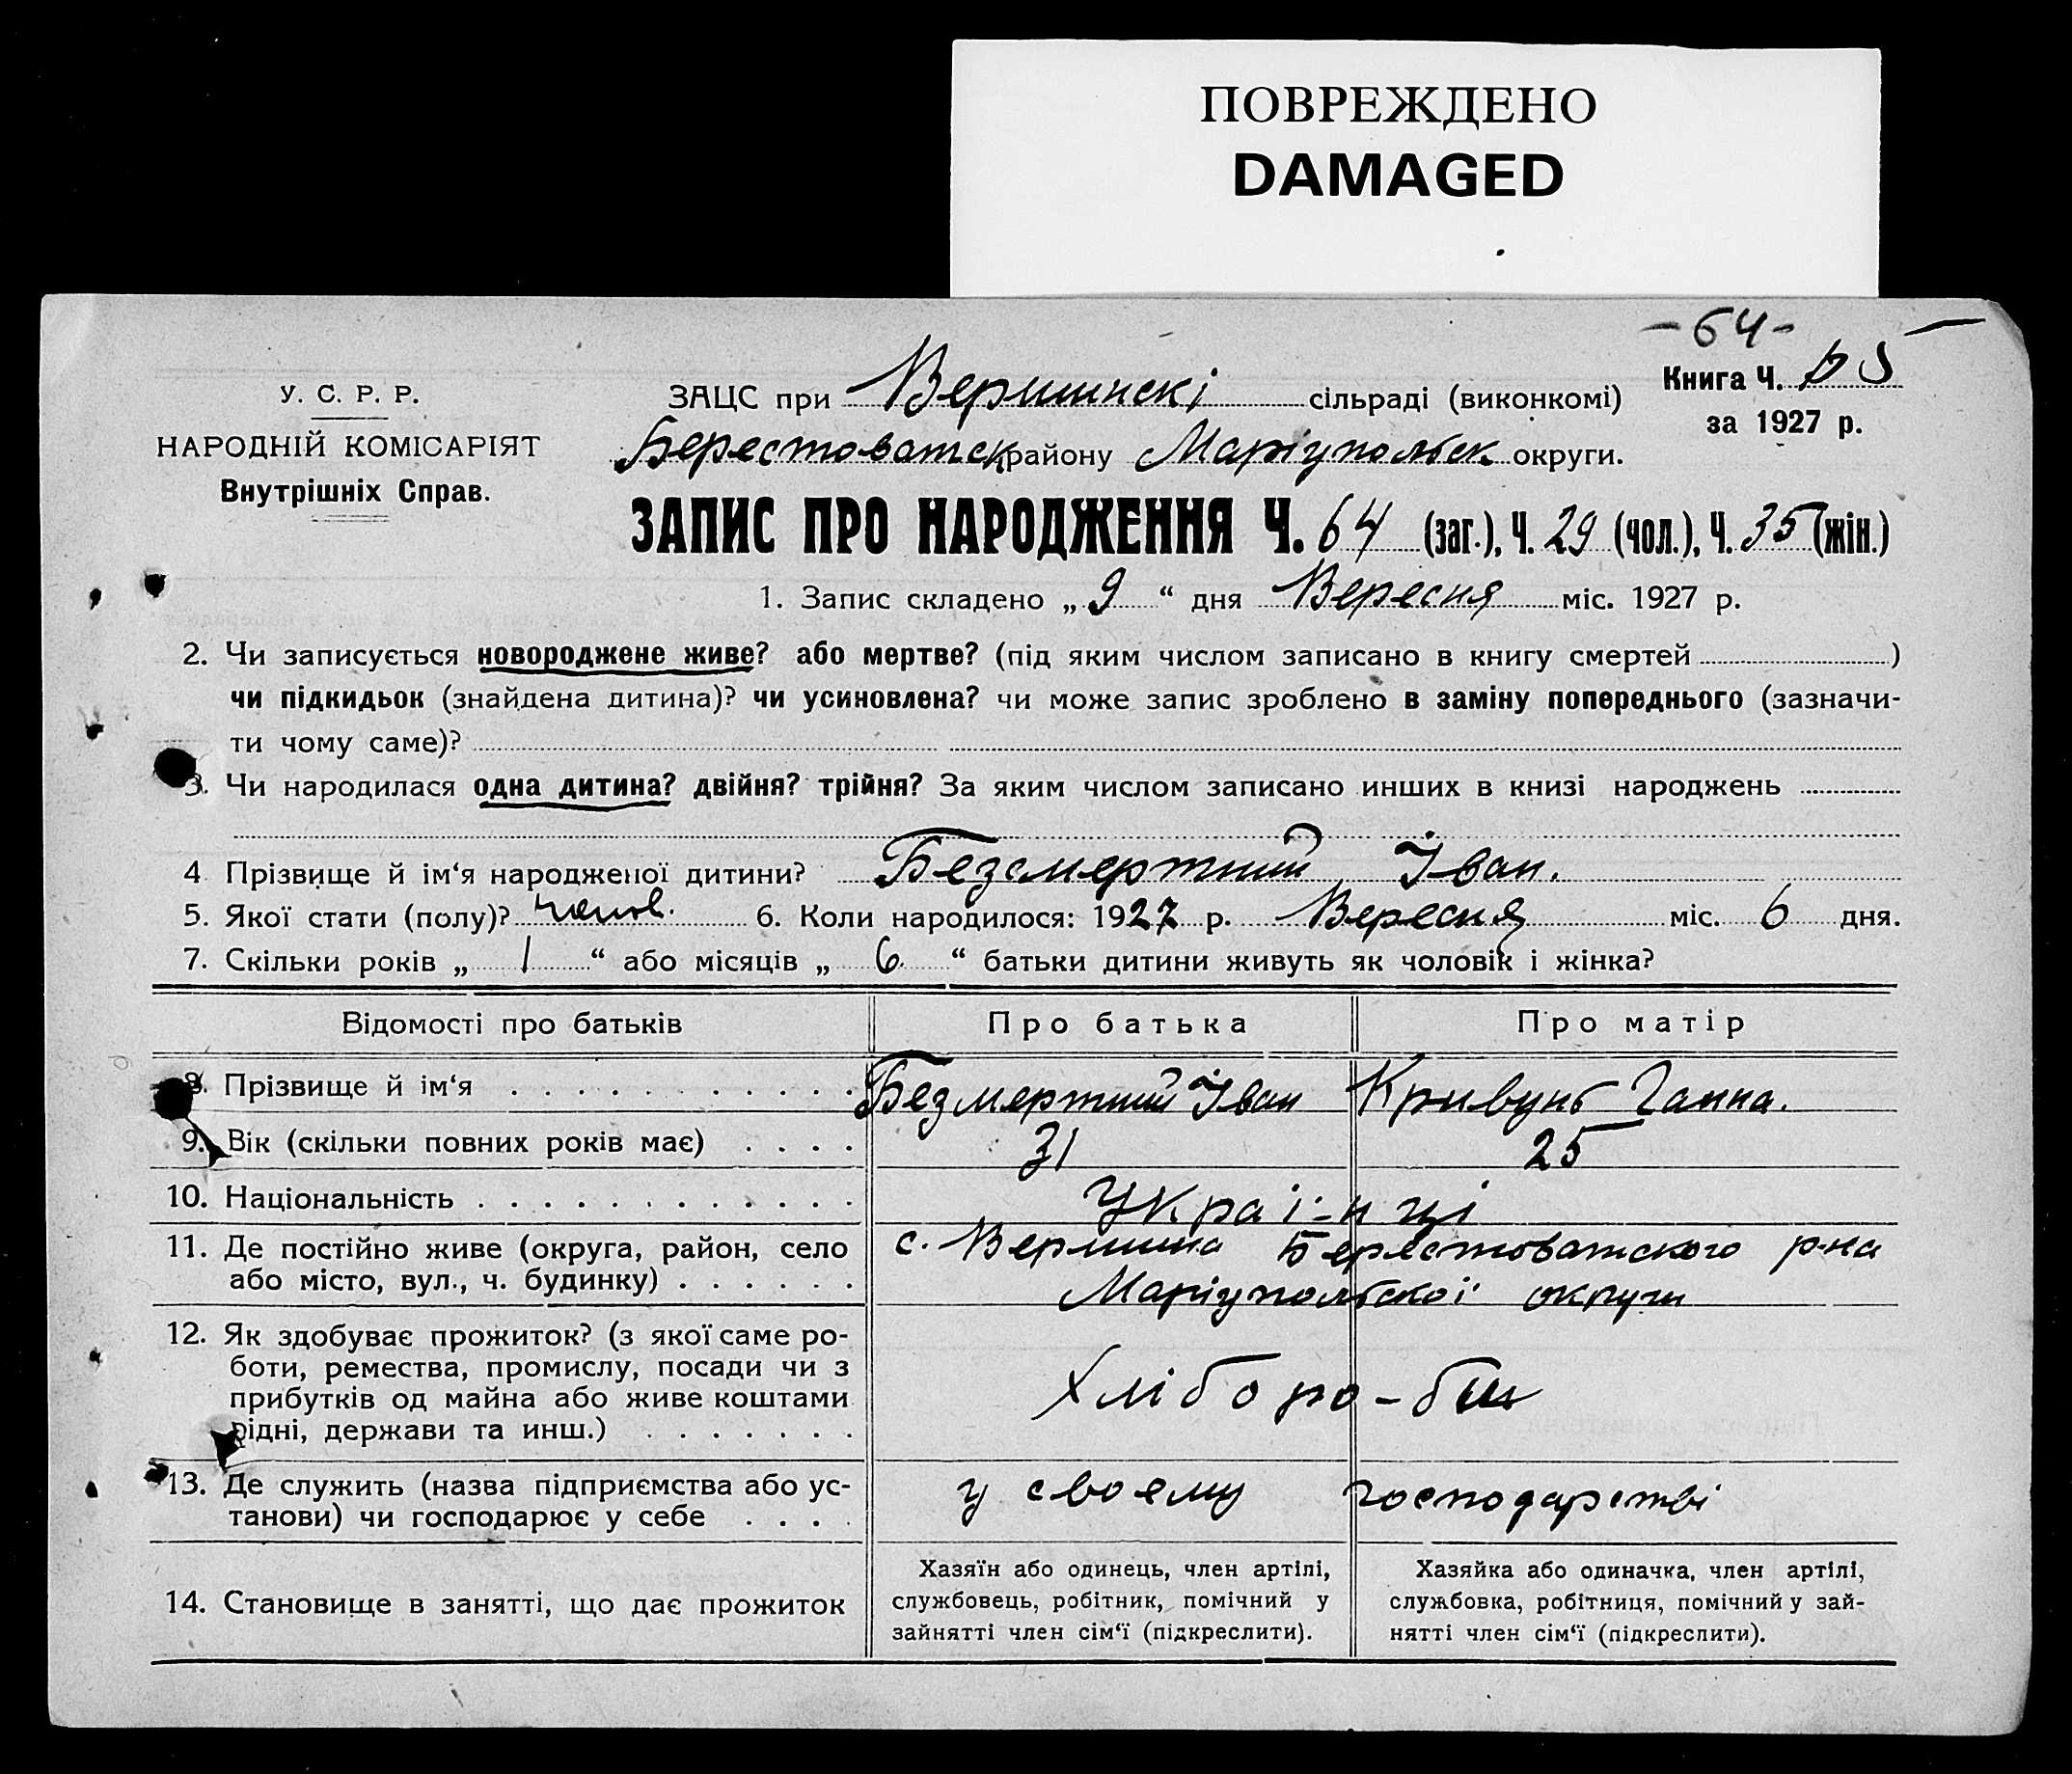 ПОВРЕЖДЕНО
DAMAGED
-64-
У. С. Р. Р.
НАРОДНІЙ КОМІСАРІЯТ
Внутрішніх Справ.
ЗАЦС при Вершинскі сільраді (виконкомі)
Книга Ч.
за 1927 р.
Берестоватск району Маріупольск округи.
ЗАПИС ПРО НАРОДЖЕННЯ Ч. 64 (заг.), Ч. 29 (чол.), Ч. 35 (жін.)
1. Запис складено „ 9 “ дня Вересня міс. 1927 р.
2. Чи записується новороджене живе? або мертве? (під яким числом записано в книгу смертей )
чи підкидьок (знайдена дитина)? чи усиновлена? чи може запис зроблено в заміну попереднього (зазначи-
ти чому саме)?
3. Чи народилася одна дитина? двійня? трійня? За яким числом записано инших в книзі народжень
4 Прізвище й ім‘я народженої дитини? Безсмертний Іван.
5. Якої стати (полу)? чолов. 6. Коли народилося: 1927 р. Вересня міс. 6 дня.
7. Скільки років „ 1 “ або місяців „ 6. “ батьки дитини живуть як чоловік і жінка?
Відомості про батьків Про батька Про матір
8. Прізвище й ім‘я Безмертний Іван Кривунь Ганна.
9. Вік (скільки повних років має) 31 25
10. Національність Украі-нці
11. Де постійно живе (округа, район, село
або місто, вул., ч. будинку)
с. Вершина Берестоватского р-на
Маріупольскоі округи
12. Як здобуває прожиток? (з якої саме ро-
боти, ремества, промислу, посади чи з
прибутків од майна або живе коштами
рідні, держави та инш.)
Хліборо-би
13. Де служить (назва підприємства або ус-
танови) чи господарює у себе
у своему господарстві
14. Становище в занятті, що дає прожиток
Хазяїн або одинець, член артілі,
службовець, робітник, помічний у
зайнятті член сім‘ї (підкреслити).
Хазяйка або одиначка, член артілі,
службовка, робітниця, помічний у зай-
нятті член сім‘ї (підкреслити).